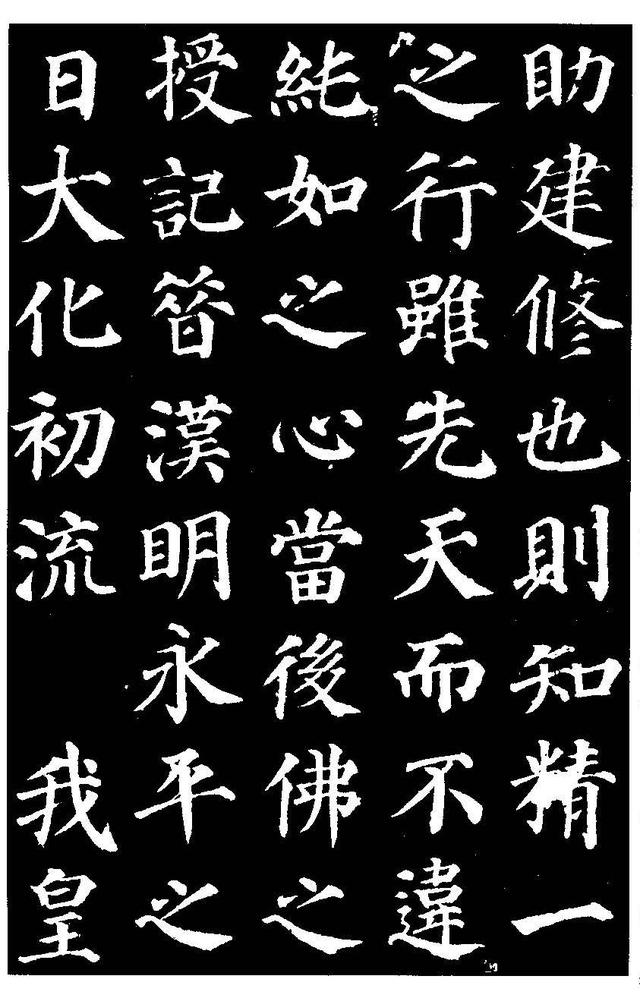 助建修也則知精一
之行雖先天而不違
純如之心當後佛之
授記昔漢明永平之
日大化初流 我皇